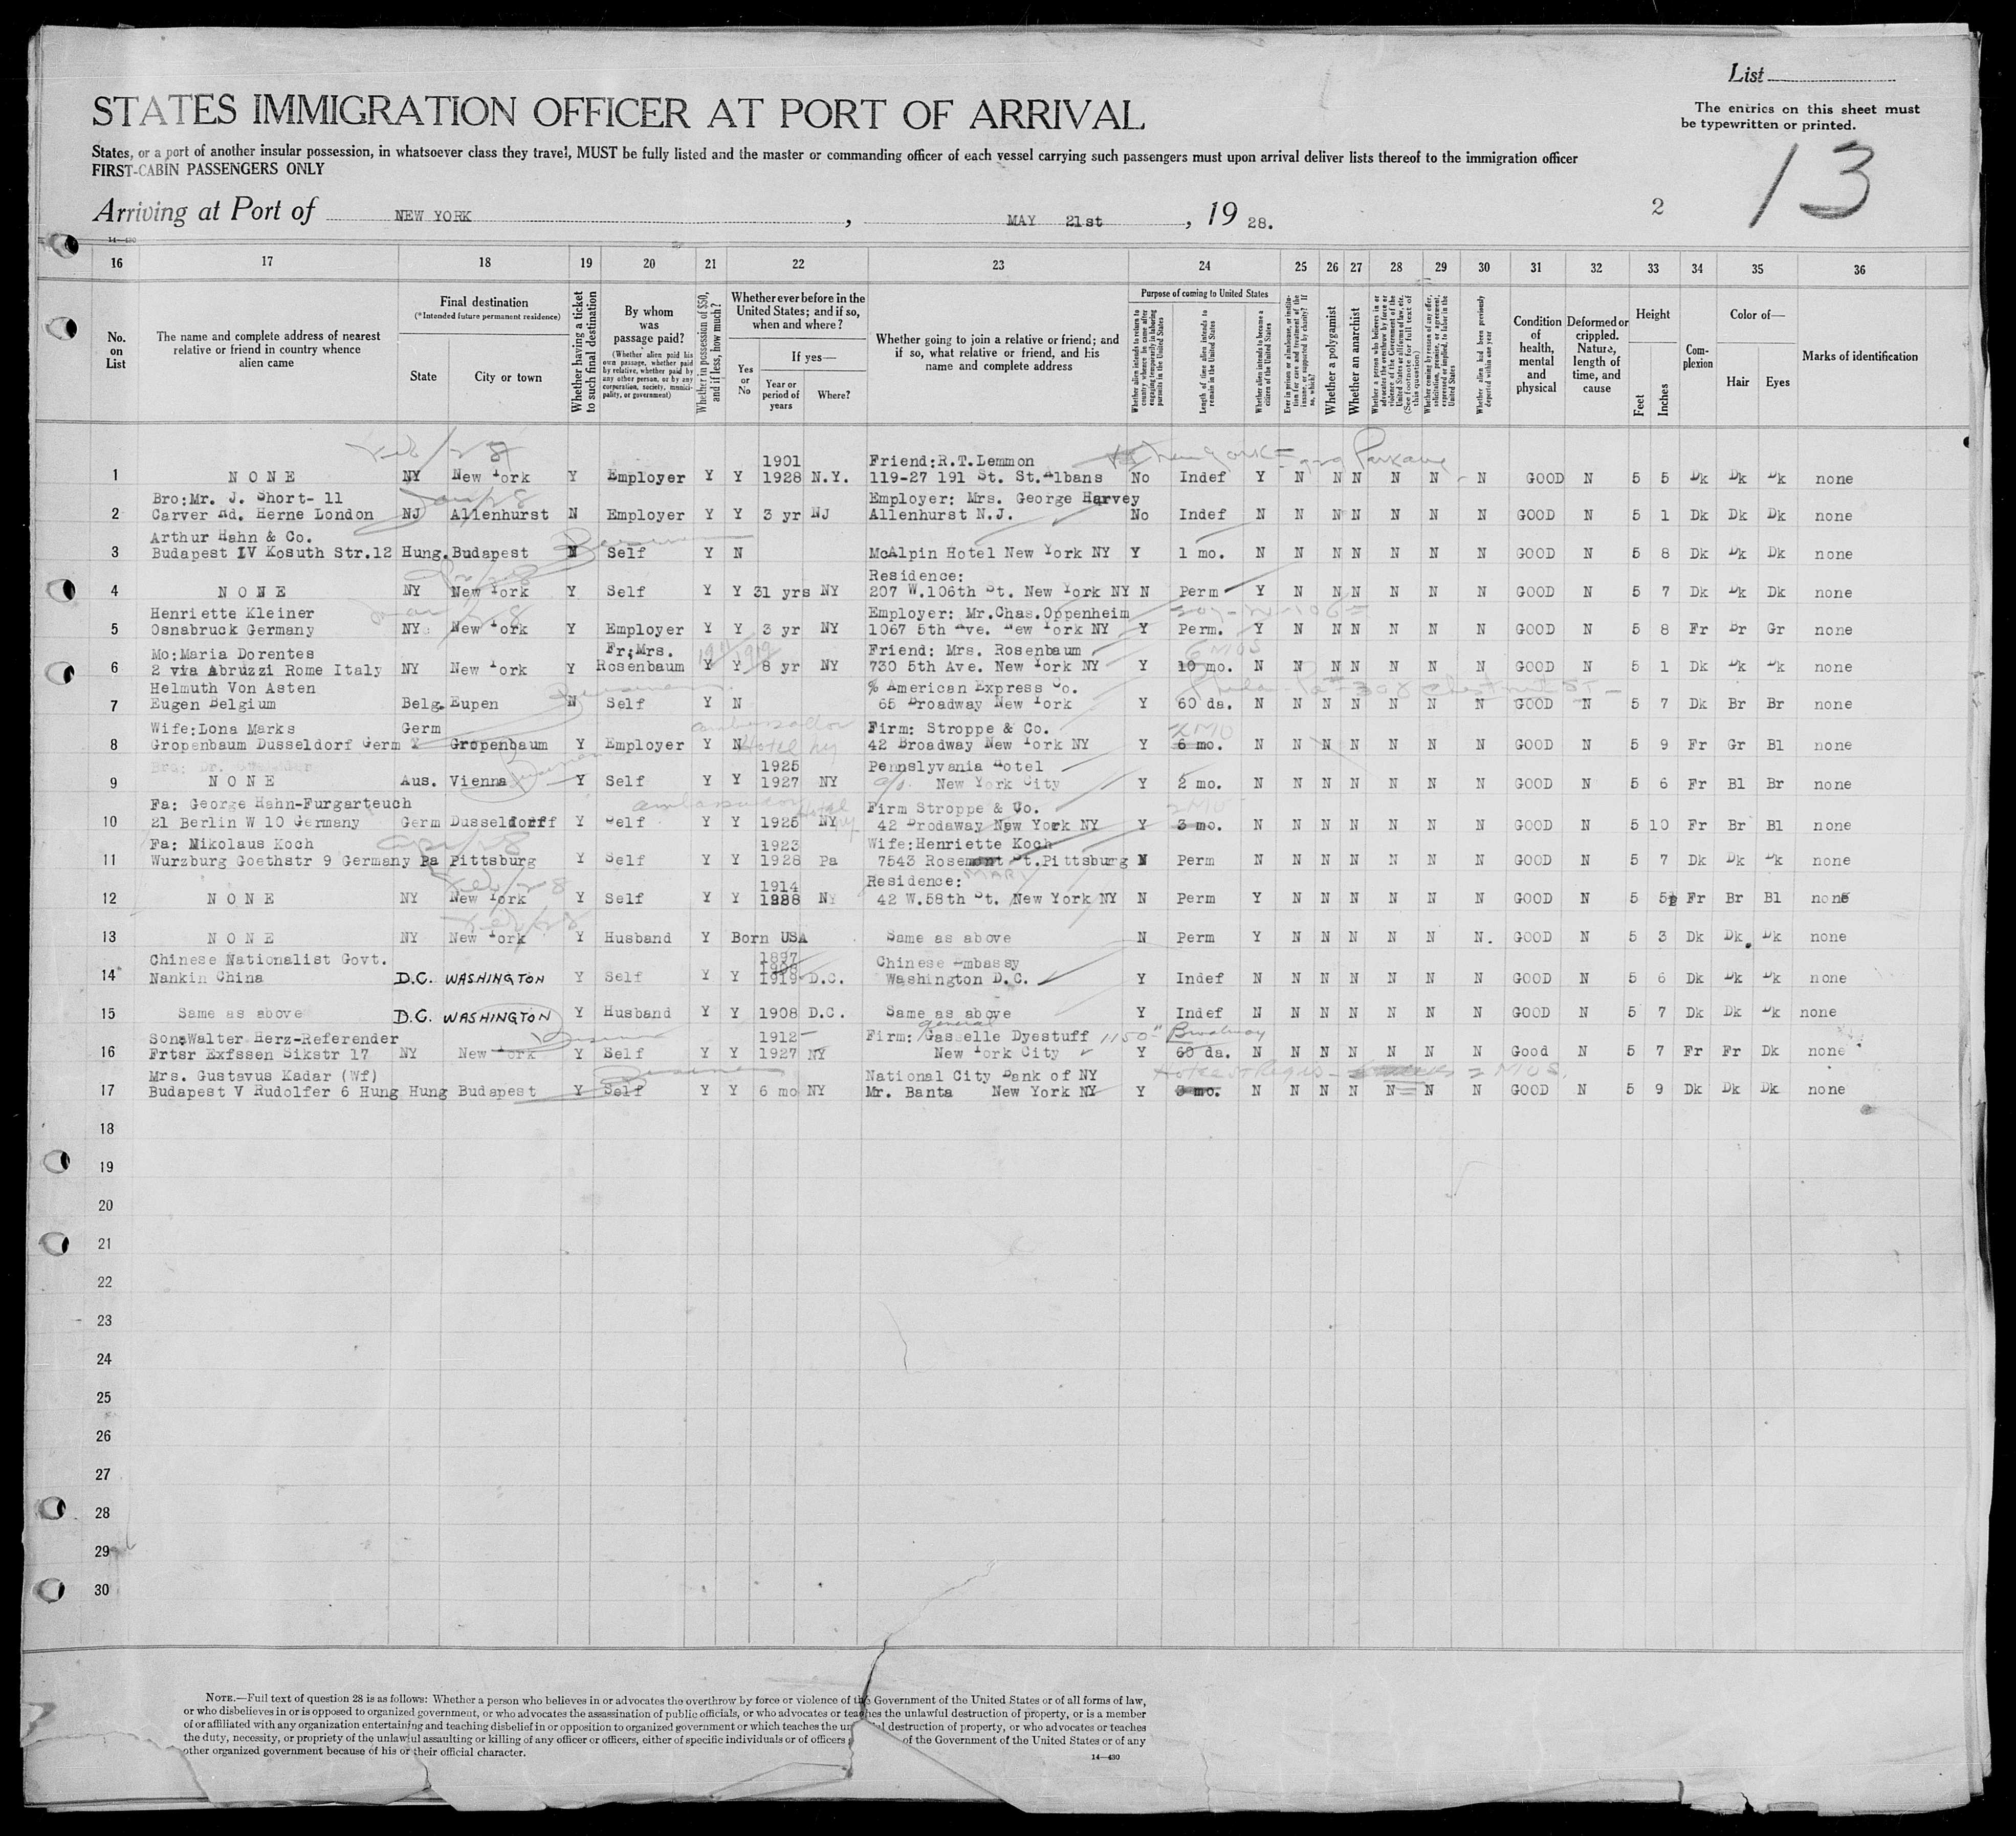 List
The entries on this sheet must
be typewritten or printed.
STATES IMMIGRATION OFFICER AT PORT OF ARRIVAL
States, or a port of another insular possession, in whatsoever class they travel, MUST be fully listed and the master or commanding officer of each vessel carrying such passengers must upon arrival deliver lists thereof to the immigration officer
FIRST-CABIN PASSENGERS ONLY
13
Arriving at Port of NEW YORK, MAY 21st, 19 28. 2
14-430
16 17 18 19 20 21 22 23 24 25 26 27 28 29 30 31 32 33 34 35 36
No. on List
The name and complete address of nearest relative or friend in country whence alien came
Final destination (*Intended future permanent residence)
State
City or town
Whether having a ticket to such final destination
By whom was passage paid?
(Whether alien paid his own passage, whether paid by relative, whether paid by any other person, or by any corporation, society, municipality, or government)
Whether in possession of $50, and if less, how much?
Whether ever before in the United States; and if so, when and where?
Yes or No
If yes—
Year or period of years
Where?
Whether going to join a relative or friend; and if so, what relative or friend, and his name and complete address
Purpose of coming to United States
Whether alien intends to return to country whence he came after engaging temporarily in laboring pursuits in the United States
Length of time alien intends to remain in the United States
Whether alien intends to become a citizen of the United States
Ever in prison or almshouse, or institution for care and treatment of the insane, or supported by charity? If so, which?
Whether a polygamist
Whether an anarchist
Whether a person who believes in or advocates the overthrow by force or violence of the Government of the United States or all forms of law, etc. (See footnote for full text of this question)
Whether coming by reason of any offer, solicitation, promise, or agreement, expressed or implied, to labor in the United States
Whether alien had been previously deported within one year
Condition of health, mental and physical
Deformed or crippled. Nature, length of time, and cause
Height
Feet
Inches
Complexion
Color of—
Hair
Eyes
Marks of identification
Feb/28 1901 Friend:R.T.Lemmon New York
1 NONE NY New York Y Employer Y Y 1928 N.Y. 119-27 191 St. St.Albans No Indef Y N N N N N N GOOD N 5 5 Dk Dk Dk none
Bro:Mr. J. Short- 11 Jan/28 Employer: Mrs. George Harvey
2 Carver Rd. Herne London NJ Allenhurst N Employer Y Y 3 yr NJ Allenhurst N.J. No Indef N N N N N N N GOOD N 5 1 Dk Dk Dk none
Arthur Hahn & Co. Business
3 Budapest IV Kosuth Str.12 Hung. Budapest N Self Y N McAlpin Hotel New York NY Y 1 mo. N N N N N N N GOOD N 5 8 Dk Dk Dk none
Residence:
4 NONE NY New York Y Self Y Y 31 yrs NY 207 W.106th St. New York NY N Perm Y N N N N N N GOOD N 5 7 Dk Dk Dk none
Henriette Kleiner Employer: Mr.Chas.Oppenheim
5 Osnabruck Germany NY New York Y Employer Y Y 3 yr NY 1067 5th Ave. New York NY Y Perm. Y N N N N N N GOOD N 5 8 Fr Br Gr none
Mo:Maria Dorentes Fr;Mrs. Friend: Mrs. Rosenbaum 6 MOS
6 2 via Abruzzi Rome Italy NY New York Y Rosenbaum Y Y 8 yr NY 730 5th Ave. New York NY Y 10 mo. N N N N N N N GOOD N 5 1 Dk Dk Dk none
Helmuth Von Asten Business % American Express Co. Phila Pa 308 Chestnut St
7 Eugen Belgium Belg. Eupen N Self Y N 65 Broadway New York Y 60 da. N N N N N N N GOOD N 5 7 Dk Br Br none
Wife:Lona Marks Germ Ambassador Firm: Stroppe & Co. 2 MO
8 Gropenbaum Dusseldorf Germ Gropenbaum Y Employer Y N Hotel NY 42 Broadway New York NY Y 6 mo. N N N N N N N GOOD N 5 9 Fr Gr Bl none
Business 1925 Pennslyvania Hotel
9 NONE Aus. Vienna Y Self Y Y 1927 NY New York City Y 2 mo. N N N N N N N GOOD N 5 6 Fr Bl Br none
Fa: George Hahn-Furgarteuch Ambassador Hotel NY Firm Stroppe & Co. 2 MO
10 21 Berlin W 10 Germany Germ Dusseldorff Y Self Y Y 1925 NY 42 Brodaway New York NY Y 3 mo. N N N N N N N GOOD N 5 10 Fr Br Bl none
Fa: Nikolaus Koch Apr/28 1923 Wife:Henriette Koch
11 Wurzburg Goethstr 9 Germany Pa Pittsburg Y Self Y Y 1928 Pa 7543 Rosemont St.Pittsburg N Perm N N N N N N N GOOD N 5 7 Dk Dk Dk none
Feb/28 1914 Residence: MARY
12 NONE NY New York Y Self Y Y 1928 NY 42 W.58th St. New York NY N Perm Y N N N N N N GOOD N 5 5½ Fr Br Bl none
Feb/28
13 NONE NY New York Y Husband Y Born USA Same as above N Perm Y N N N N N N. GOOD N 5 3 Dk Dk Dk none
Chinese Nationalist Govt. 1897 1908 Chinese Embassy
14 Nankin China D.C. WASHINGTON Y Self Y Y 1919 D.C. Washington D.C. Y Indef N N N N N N N GOOD N 5 6 Dk Dk Dk none
15 Same as above D.C. WASHINGTON Y Husband Y Y 1908 D.C. Same as above Y Indef N N N N N N N GOOD N 5 7 Dk Dk Dk none
Son:Walter Herz-Referender Business 1912- Firm: Gasselle Dyestuff general 1150 Broadway
16 Frtsr Exfssen Sikstr 17 NY New York Y Self Y Y 1927 NY New York City Y 60 da. N N N N N N N Good N 5 7 Fr Fr Dk none
Mrs. Gustavus Kadar (Wf) Business National City Bank of NY Hotel St Regis 2 MOS.
17 Budapest V Rudolfer 6 Hung Hung Budapest Y Self Y Y 6 mo NY Mr. Banta New York NY Y 3 mo. N N N N N N N GOOD N 5 9 Dk Dk Dk none
18
19
20
21
22
23
24
25
26
27
28
29
30
NOTE.—Full text of question 28 is as follows: Whether a person who believes in or advocates the overthrow by force or violence of the Government of the United States or of all forms of law,
or who disbelieves in or is opposed to organized government, or who advocates the assassination of public officials, or who advocates or teaches the unlawful destruction of property, or is a member
of or affiliated with any organization entertaining and teaching disbelief in or opposition to organized government or which teaches the destruction of property, or who advocates or teaches
the duty, necessity, or propriety of the unlawful assaulting or killing of any officer or officers, either of specific individuals or of officers of the Government of the United States or of any
other organized government because of his or their official character.
14-430